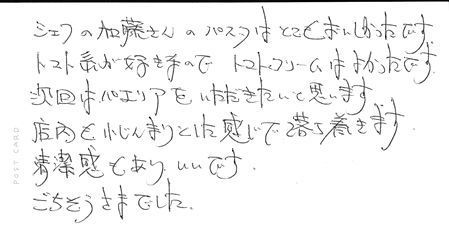 シェフの加藤さんのパスタはとてもおいしかったです
トマト系が好きなので トマトクリームはよかったです.
次回はパエリアをいただきたいと思います
店内もこじんまりとした感じで落ち着きます.
清潔感もあり いいです.
ごちそうさまでした.
POST CARD